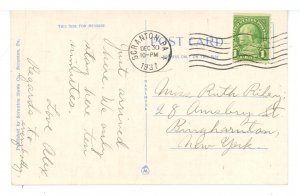 THIS SIDE FOR MESSAGE
Just arrived
here. We only
stay here ten
minutes.
Love Alex
Regards to
everybody
POST CARD
SCRANTON, PA.
DEC 30
10-PM
1931
1
Miss Ruth Riley
28 Amsbry St
Binghamton
New York.